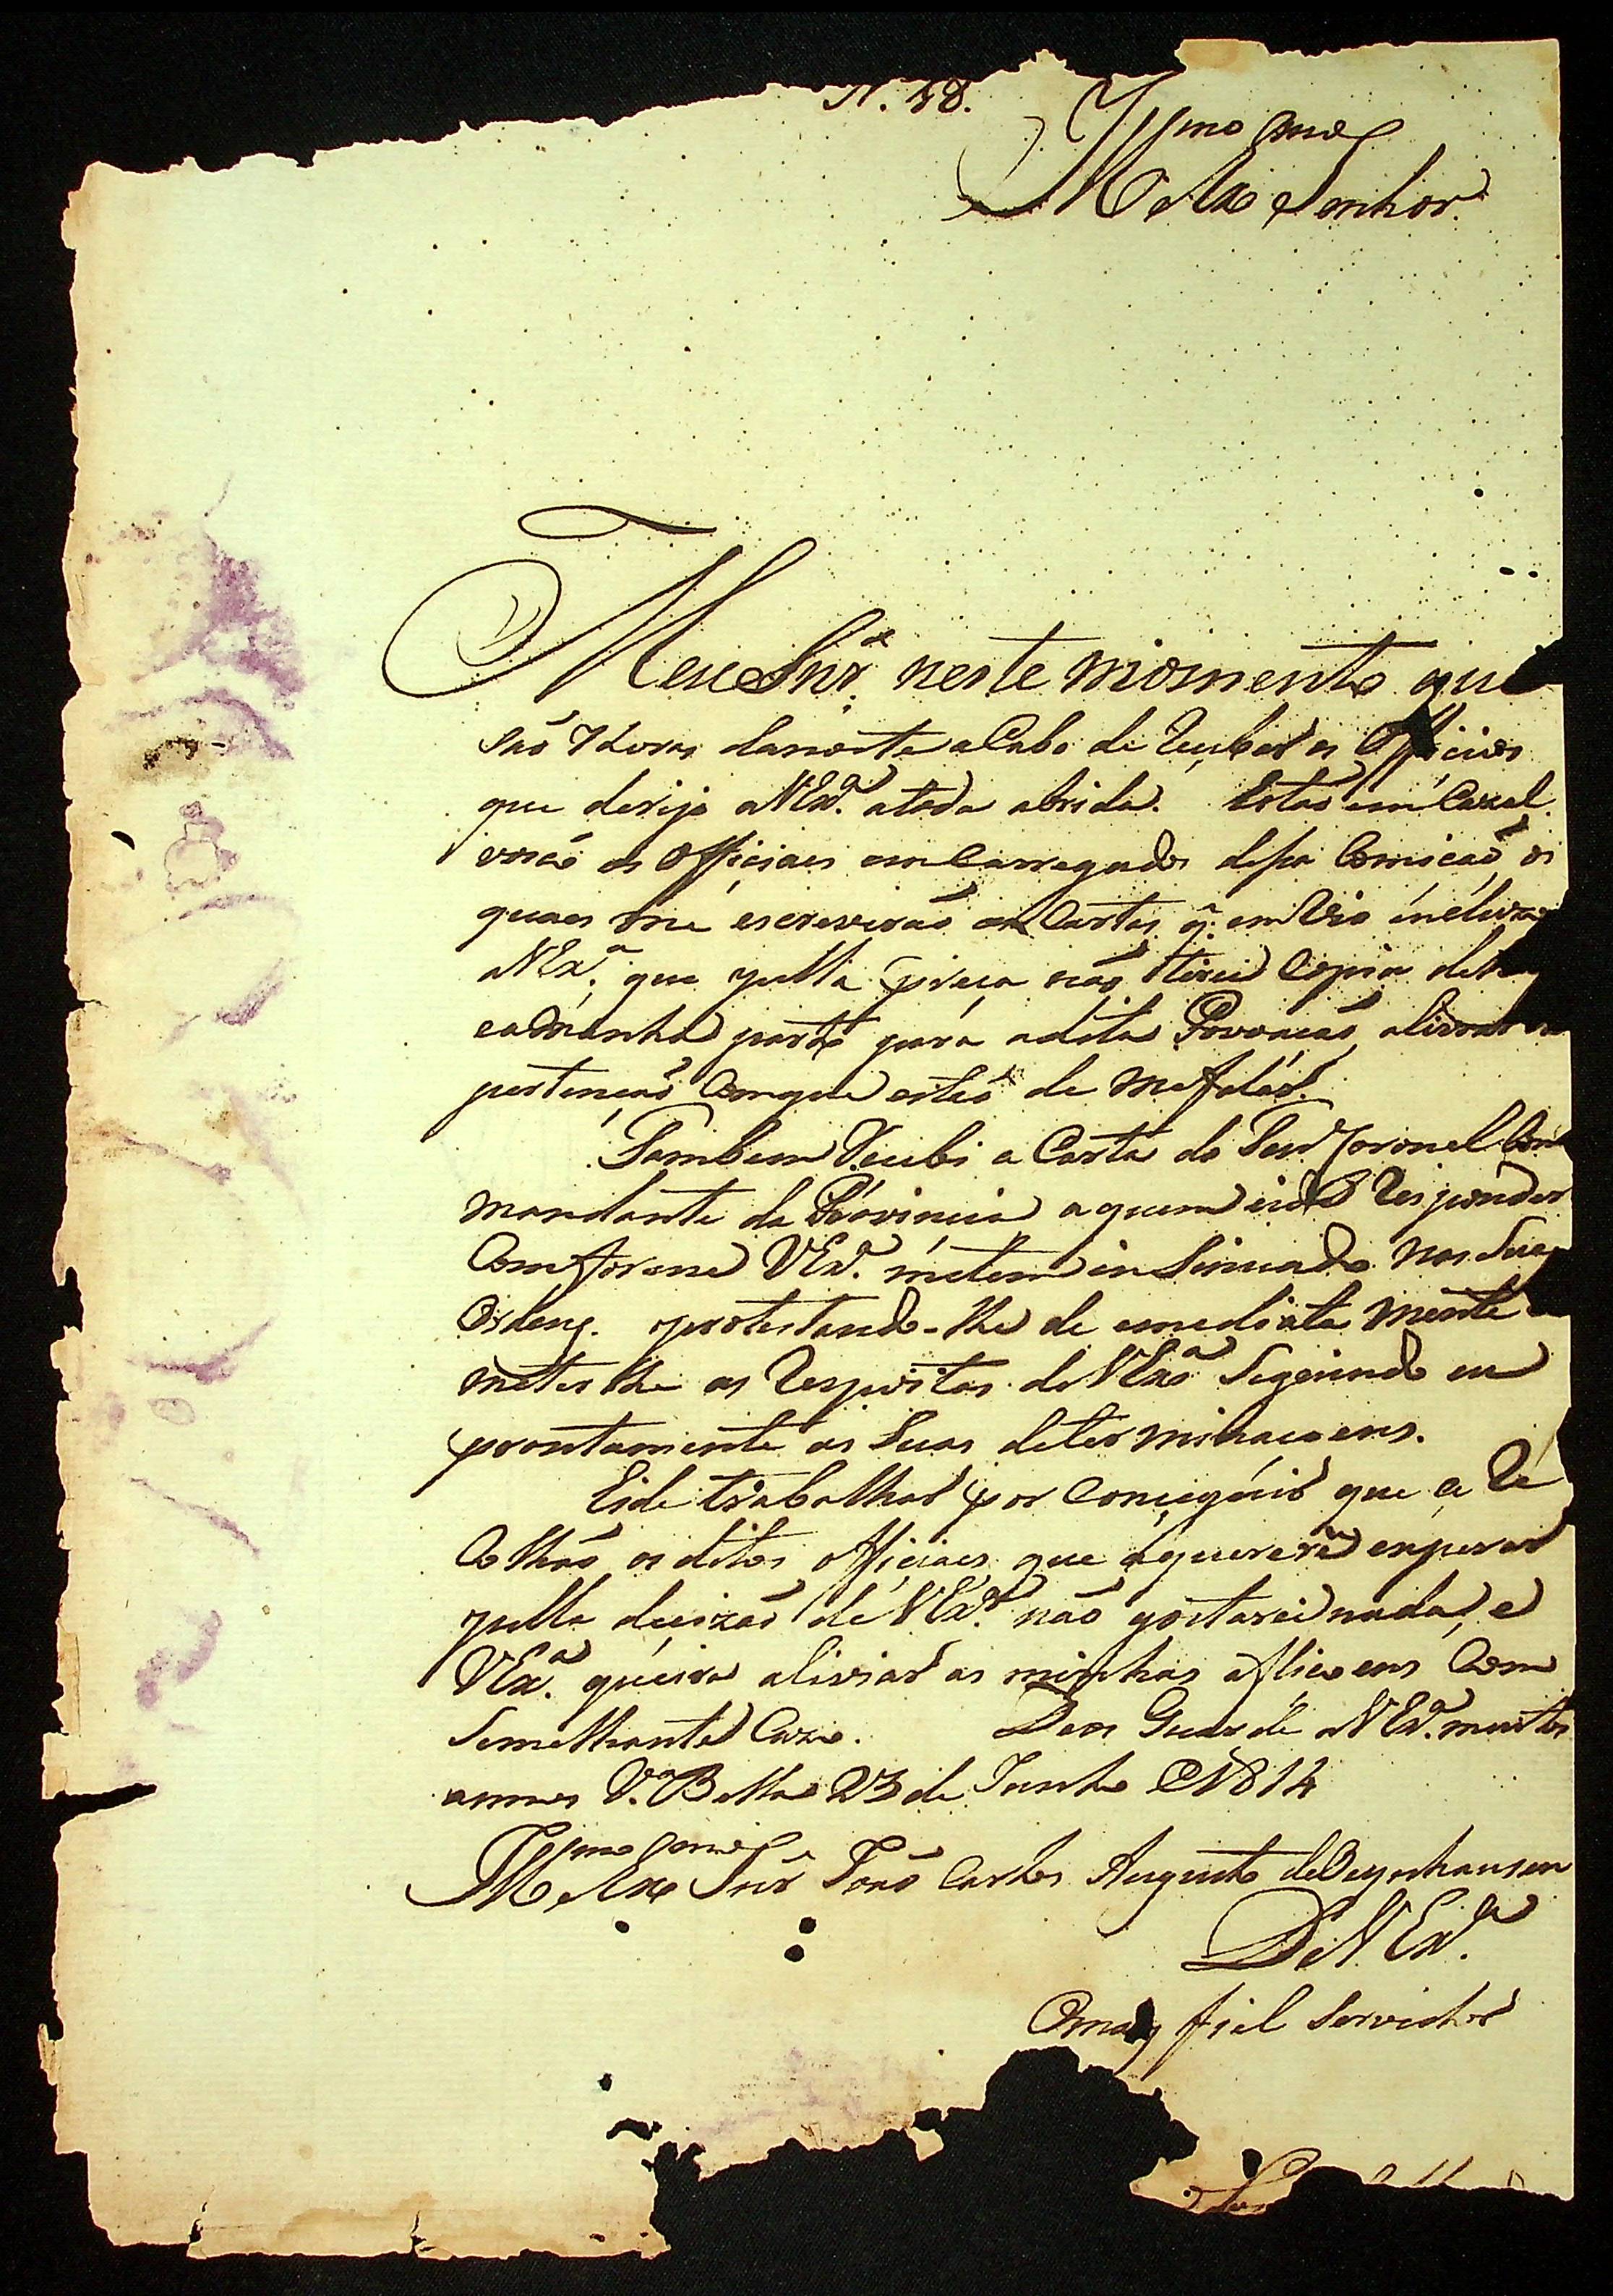 N. 58.
Illmo mo
e Exo Senhor.
Meu Snr. neste momento que
são 7 horas danoite acabo de Reçeber os Officios
que derijo aVExa. atoda abrida. Estão em Cazal
vasco os Offiçiaes emCarregados desa Comicaõ, os
quaes me escreverão as Cartas q. emVio incluzas
aVExa. que pella preça não tirei Copia
eaManhã parto para adita Povoacaõ,
pertençaõ Comque estaõ de Mefalár.
Tambem Recebi a Carta do Seu Coronel Com
mandante da Próvincia aquem eide Responder
Comforme VExa. metem inSinuado nas Suas
Ordens. protestando-lhe de emediata Mente
meter lhe as Respostas de VExa. Segindo eu
prontamente as Suas deterMinacoens.
Eide trabalhar por Conçeguir que se Re
Colhaõ os ditos offiçiaes que aquererẽ esperar
pella deçizaõ de VExa. não gostarei nada, e
VExa. queira aliviar as minhas aflicoens Com
SemelhantesCazo. Deos Guarde aVExa. muitos
annos Va. Bella 23 de Junho de1814
Illmo mo
e Exo Snr João Carlos Augusto deOeynhausen
DeVExa.
Omais fiel Servidor